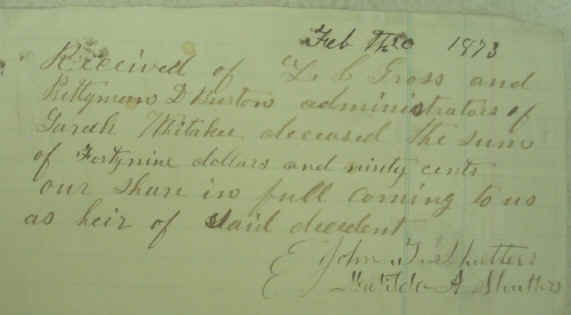 Feb 1873
Received of L C Gross and
Prettyman D Burton administrators of
Sarah Whitaker deceased the sum
of Fortynine dollars and ninety cents
our share in full coming to us
as heir of said decedent
John T. Shutters
Matilda A Shutters